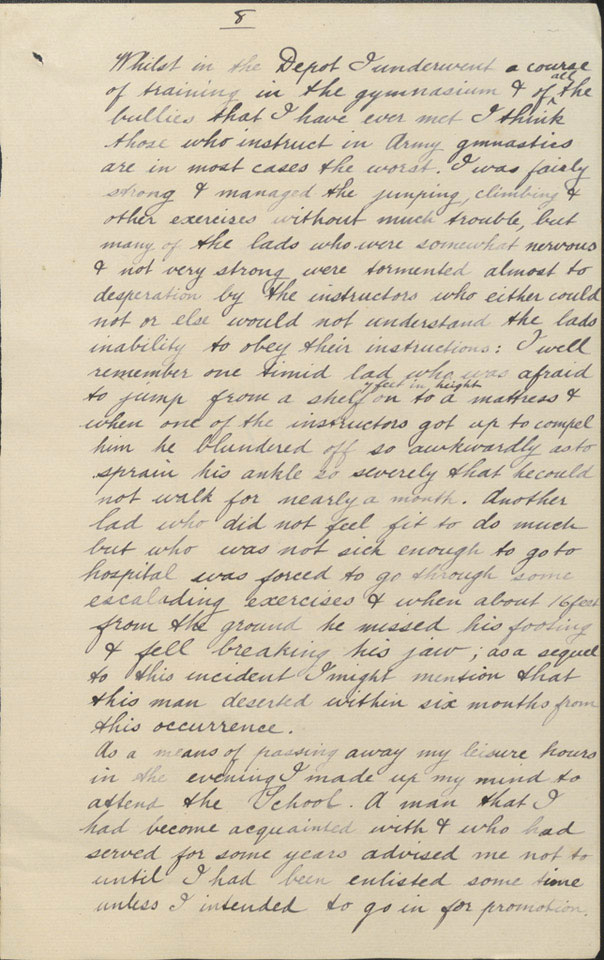 8
Whilst in the Depot I underwent a course
of training in the gymnasium & of all the
bullies that I have ever met I think
those who instruct in Army gmnastics
are in most cases the worst. I was fairly
strong & managed the jumping, climbing &
other exercises without much trouble, but
many of the lads who were somewhat nervous
& not very strong were tormented almost to
desperation by the instructors who either could
not or else would not understand the lads
inability to obey their instructions: I well
remember one timid lad who was afraid
to jump from a shelf 7 feet in height on to a mattress &
when one of the instructors got up to compel
him he blundered off so awkwardly as to
sprain his ankle so severely that he could
not walk for nearly a month. Another
lad who did not feel fit to do much
but who was not sick enough to go to
hospital was forced to go through some
escalading exercises & when about 16 feet
from the ground he missed his footing
& fell breaking his jaw; as a sequel
to this incident I might mention that
this man deserted within six months from
this occurrence.
As a means of passing away my leisure hours
in the evening I made up my mind to
attend the School. A man that I
had become acquainted with & who had
served for some years advised me not to
until I had been enlisted some time
unless I intended to go in for promotion.